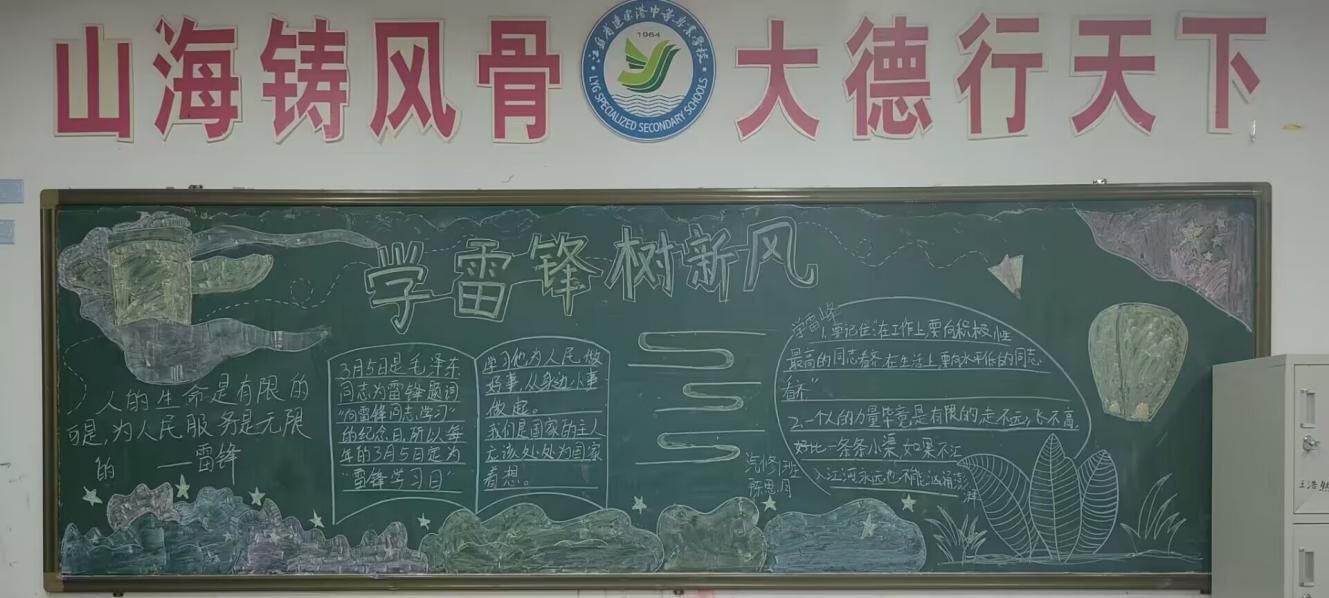 山海铸风骨
1964
江苏省连云港中等专业学校
LYG SPECIALIZED SECONDARY SCHOOLS
大德行天下
学雷锋树新风
人的生命是有限的
可是，为人民服务是无限
的 ——雷锋
3月5日是毛泽东
同志为雷锋题词
“向雷锋同志学习”
的纪念日，所以每
年的3月5日定为
“雷锋学习日”
学习他为人民做
好事，从身边小事
做起。
我们是国家的主人
应该处处为国家
着想。
汽修1班
陈思月
学雷锋
1.要记住“在工作上，要向积极性
最高的同志看齐，在生活上，要向水平低的同志
看齐”
2.一个人的力量毕竟是有限的，走不远，飞不高，
好比一条条小渠，如果不汇
入江河，永远也不能汹涌澎
湃